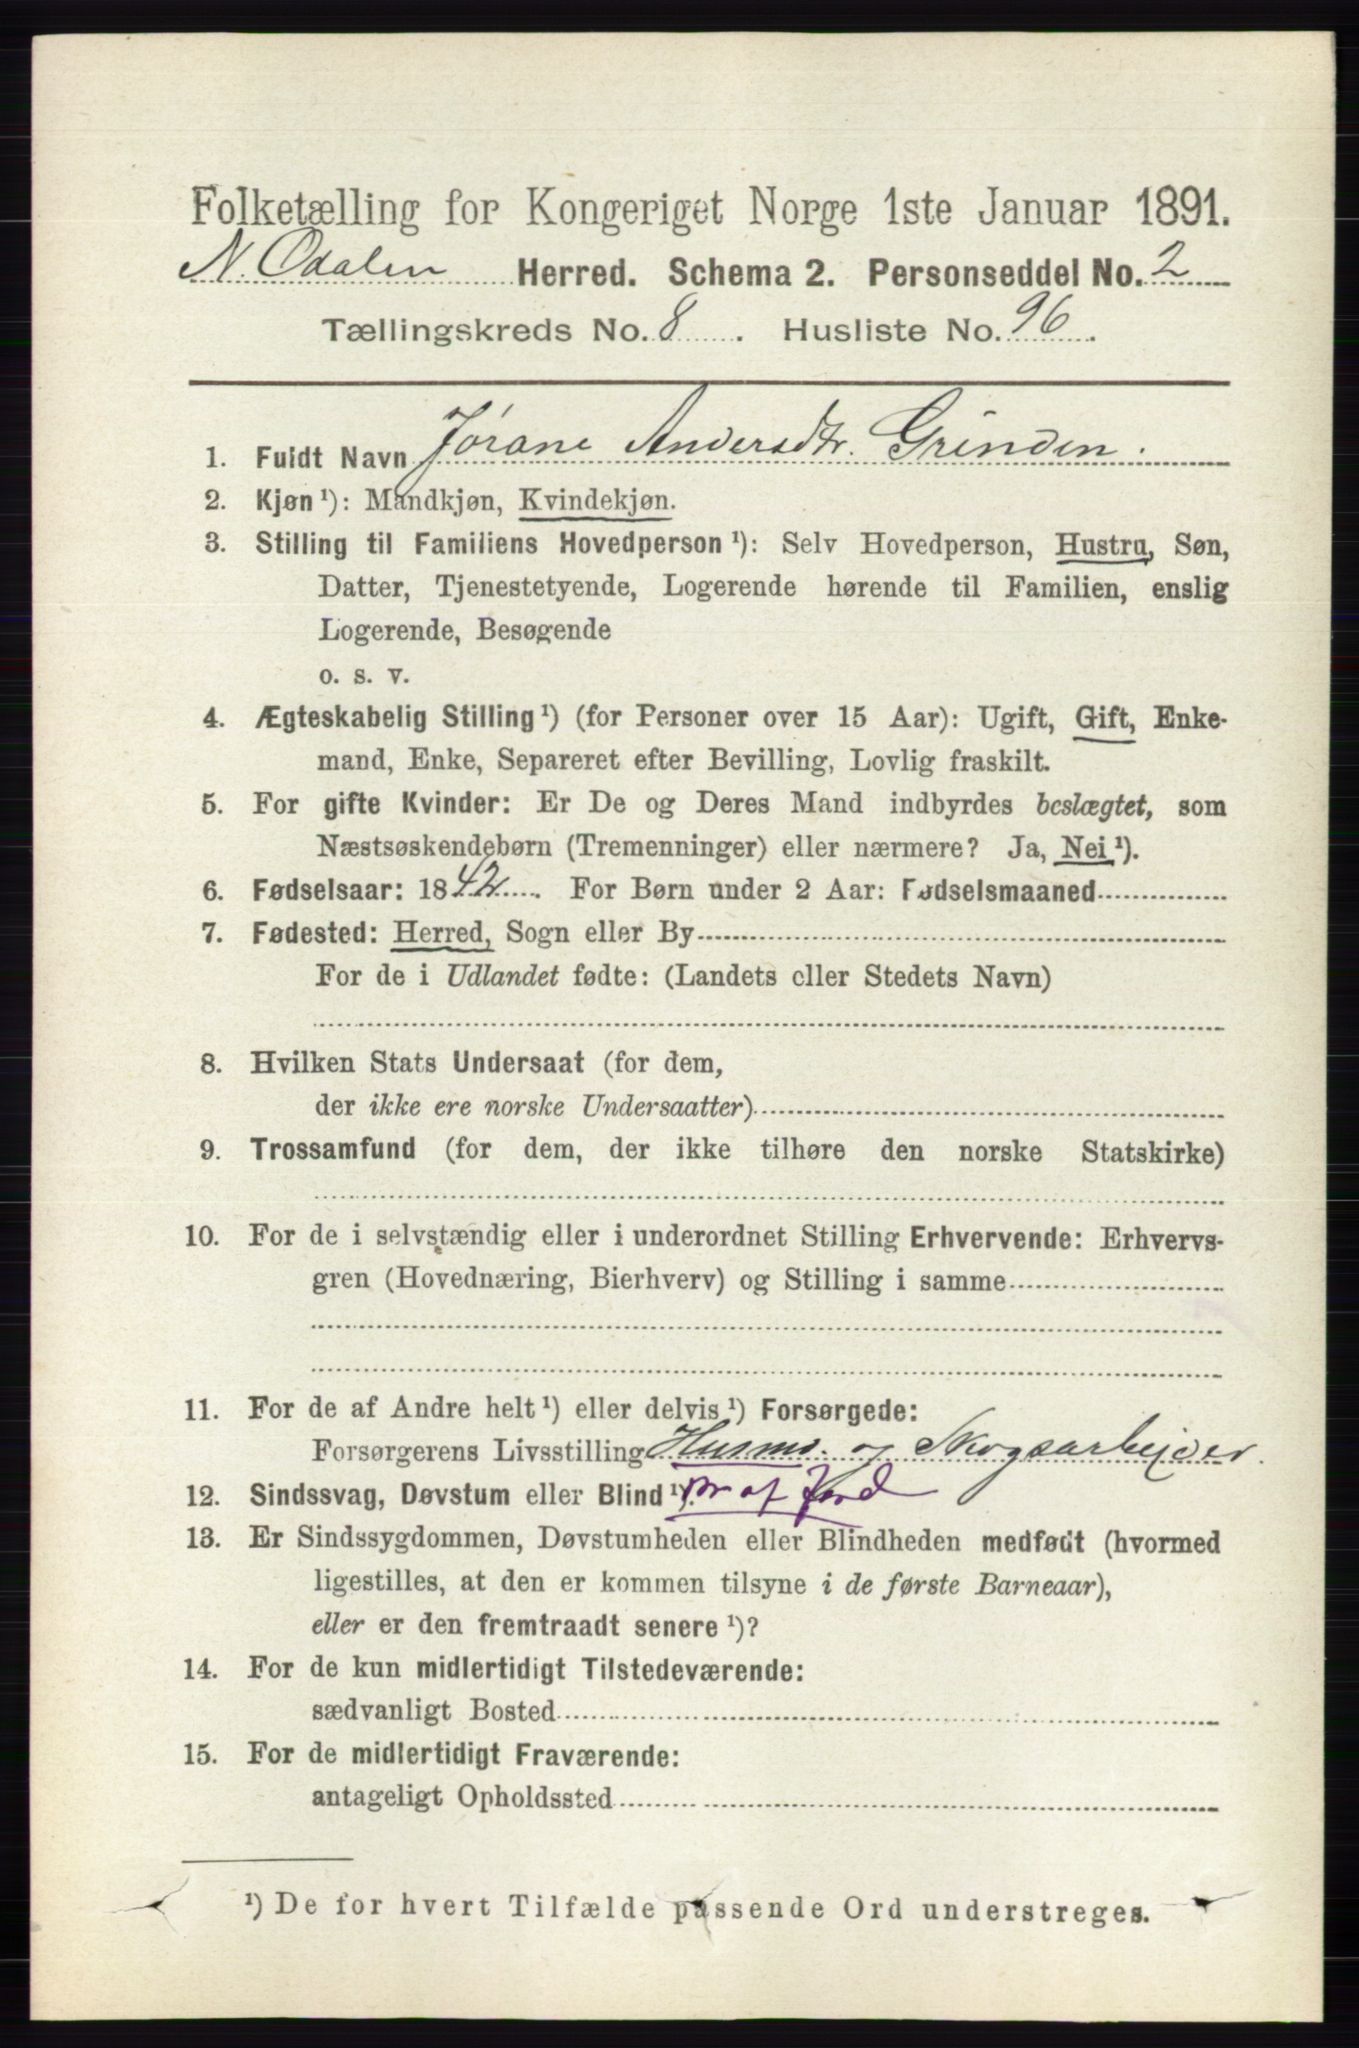 Folketælling for Kongeriget Norge 1ste Januar 1891.
N. Odalen Herred. Schema 2. Personseddel No. 2
Tællingskreds No. 8. Husliste No. 96.
1. Fuldt Navn Jørane Andersdtr. Grinden.
2. Kjøn¹): Mandkjøn, Kvindekjøn.
3. Stilling til Familiens Hovedperson¹): Selv Hovedperson, Hustru, Søn,
Datter, Tjenestetyende, Logerende hørende til Familien, enslig
Logerende, Besøgende
o. s. v.
4. Ægteskabelig Stilling¹) (for Personer over 15 Aar): Ugift, Gift, Enke-
mand, Enke, Separeret efter Bevilling, Lovlig fraskilt.
5. For gifte Kvinder: Er De og Deres Mand indbyrdes beslægtet, som
Næstsøskendebørn (Tremenninger) eller nærmere? Ja, Nei¹).
6. Fødselsaar: 1842. For Børn under 2 Aar: Fødselsmaaned
7. Fødested: Herred, Sogn eller By
For de i Udlandet fødte: (Landets eller Stedets Navn)
8. Hvilken Stats Undersaat (for dem,
der ikke ere norske Undersaatter)
9. Trossamfund (for dem, der ikke tilhøre den norske Statskirke)
10. For de i selvstændig eller i underordnet Stilling Erhvervende: Erhvervs-
gren (Hovednæring, Bierhverv) og Stilling i samme
11. For de af Andre helt¹) eller delvis¹) Forsørgede:
Forsørgerens Livsstilling Husmd. og Skogsarbejder.
12. Sindssvag, Døvstum eller Blind¹). m af Jord
13. Er Sindssygdommen, Døvstumheden eller Blindheden medfødt (hvormed
ligestilles, at den er kommen tilsyne i de første Barneaar),
eller er den fremtraadt senere¹)?
14. For de kun midlertidigt Tilstedeværende:
sædvanligt Bosted
15. For de midlertidigt Fraværende:
antageligt Opholdssted
¹) De for hvert Tilfælde passende Ord understreges.